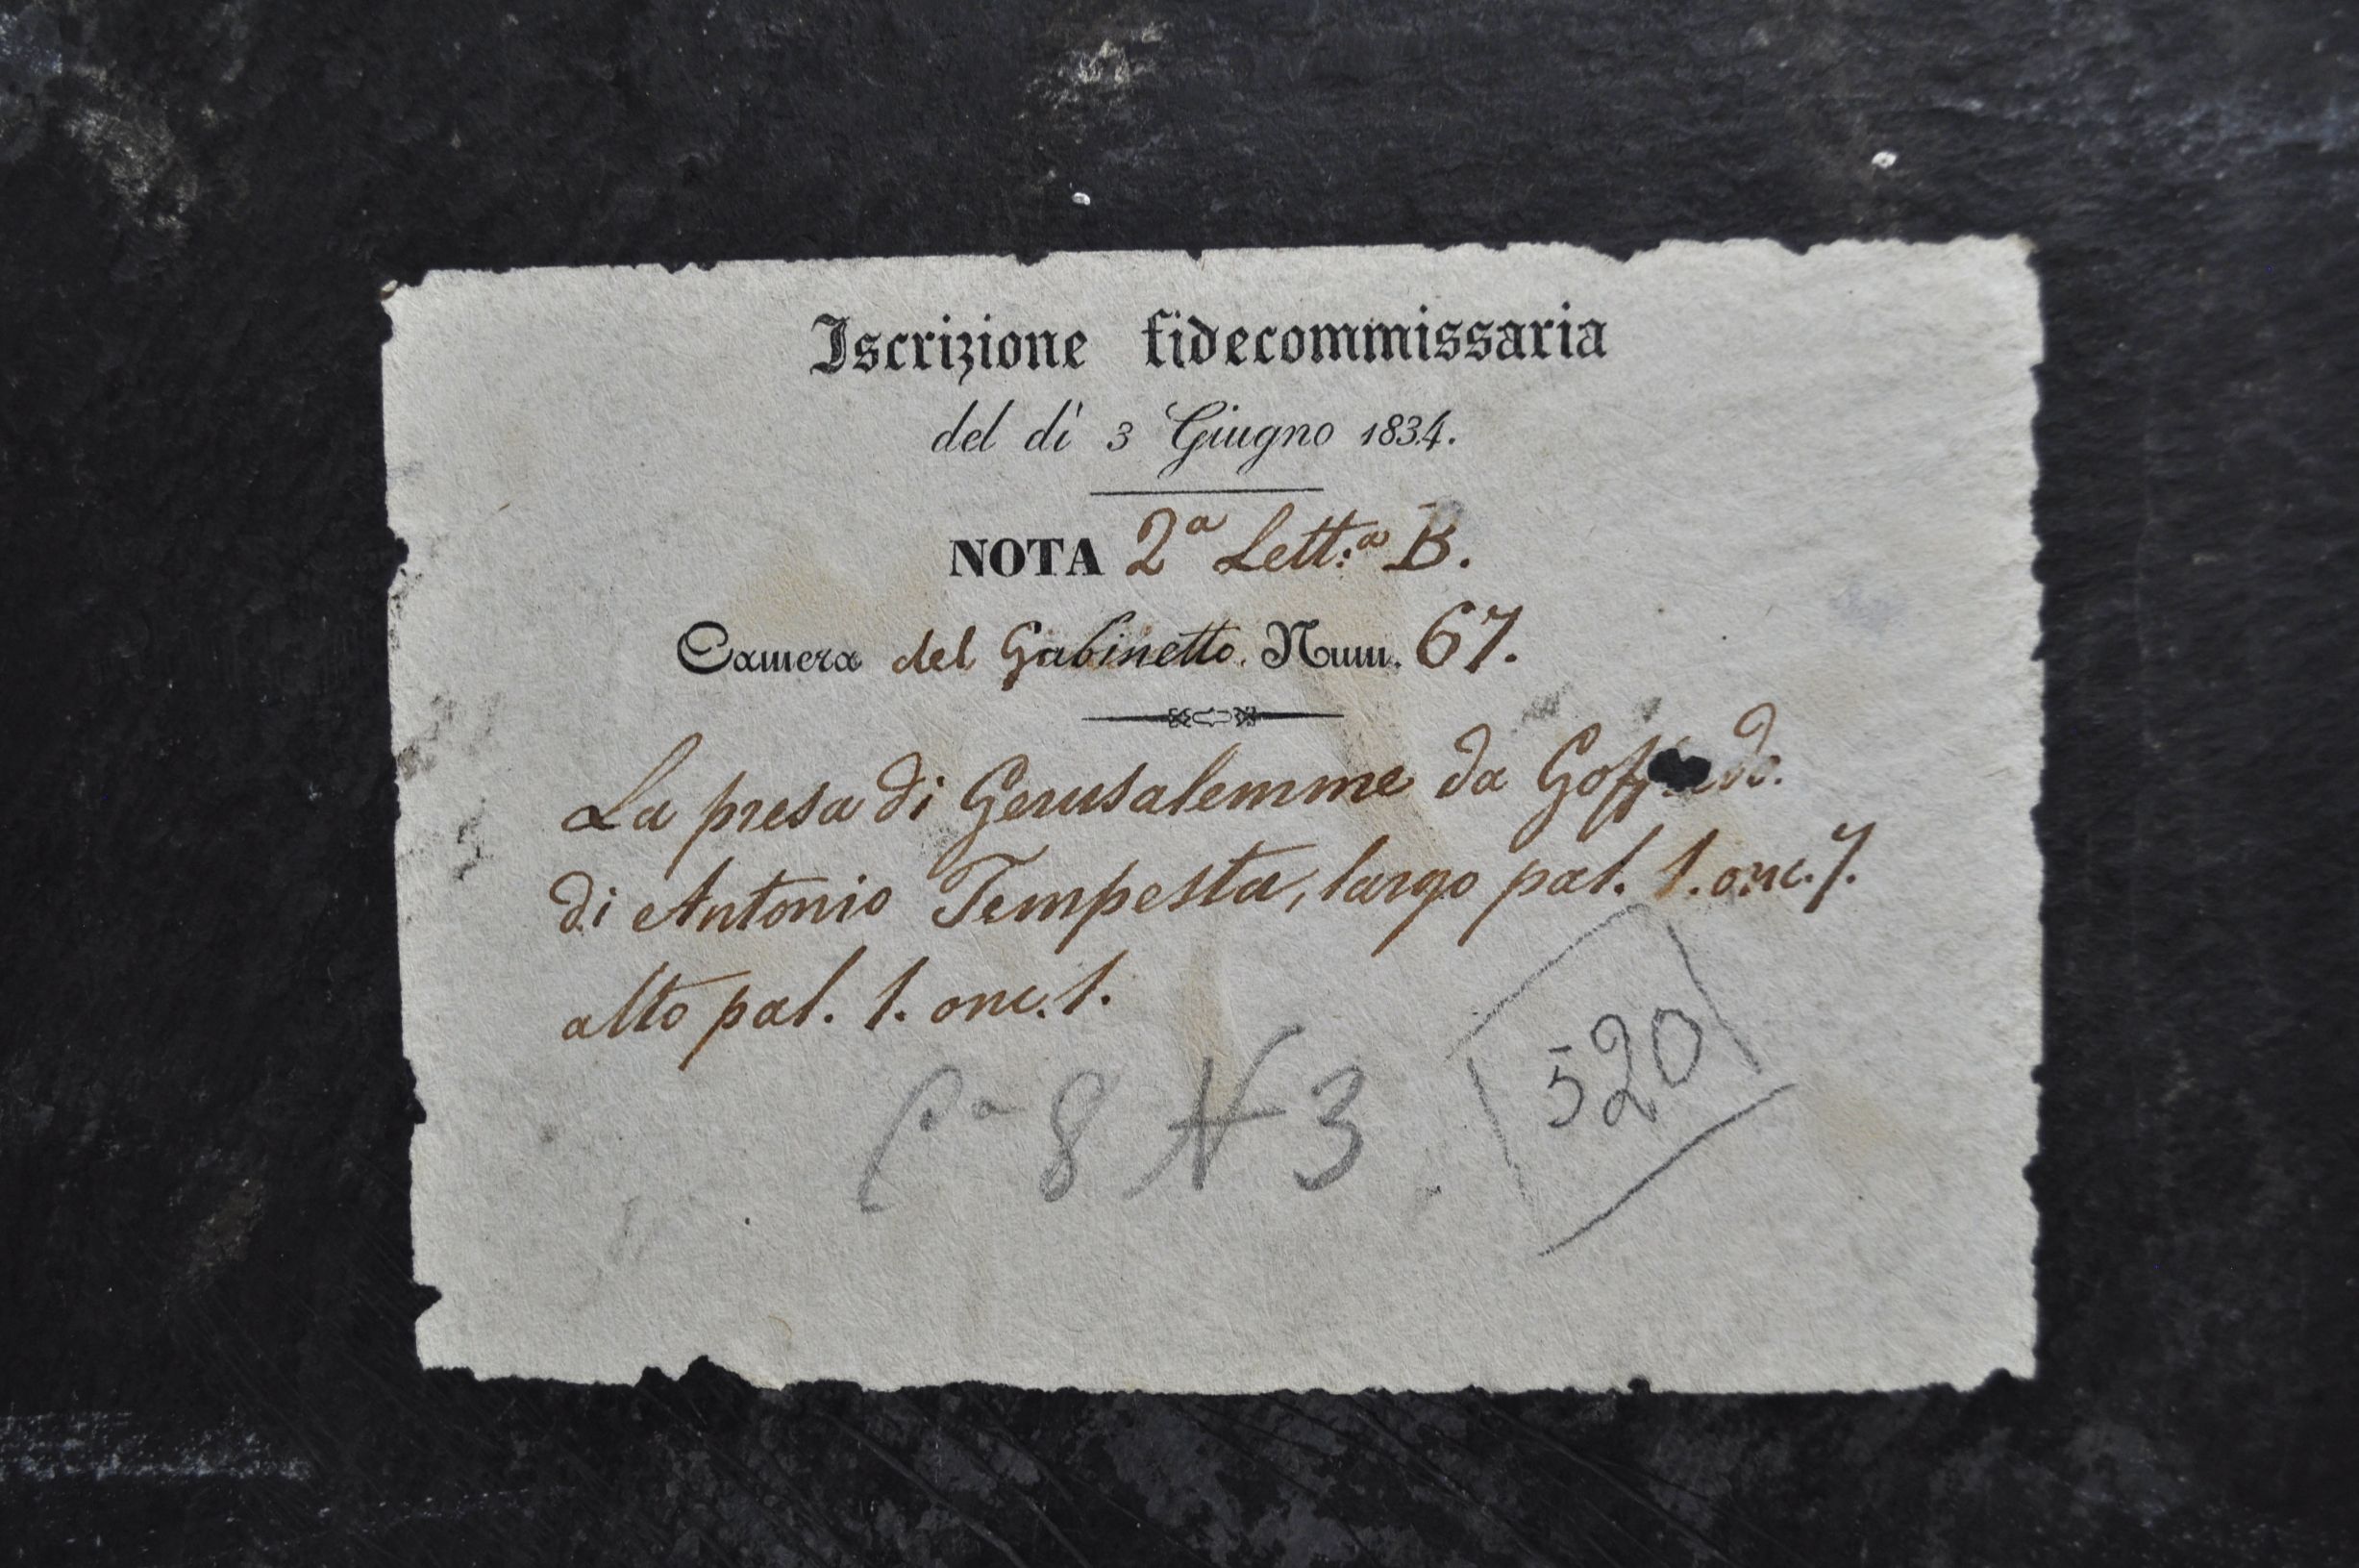 Iscrizione fidecommissaria
del dì 3 Giugno 1834.
NOTA 2ª Lett:ª B.
Camera del Gabinetto. Num. 67.
La presa di Gerusalemme da
di Antonio Tempesta, largo pal. 1. onc. 7.
alto pal. 1. onc. 1.
Cª 8 N 3
520